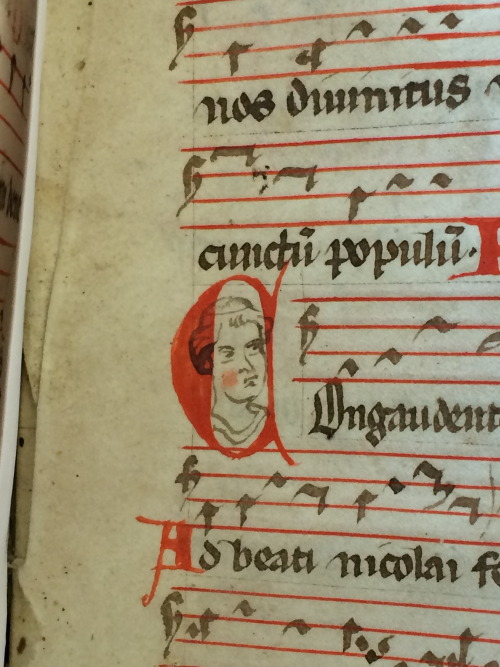 nos diuinitus
cunctū populū.
Congaudent
Ad beati nicolai